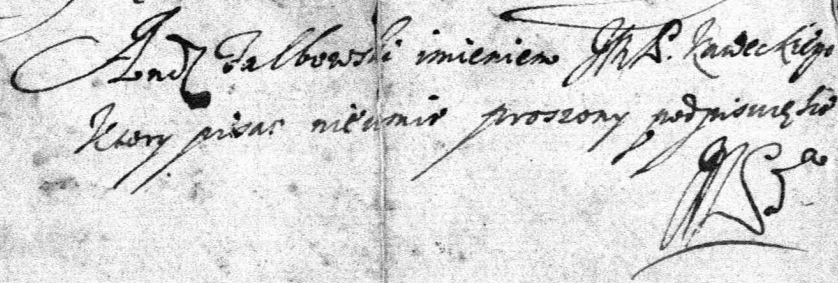 Andꝫ Falbowski imieniem JMP. Kaweckiego
Ktory pisac nieumie proszony podpisuię sie